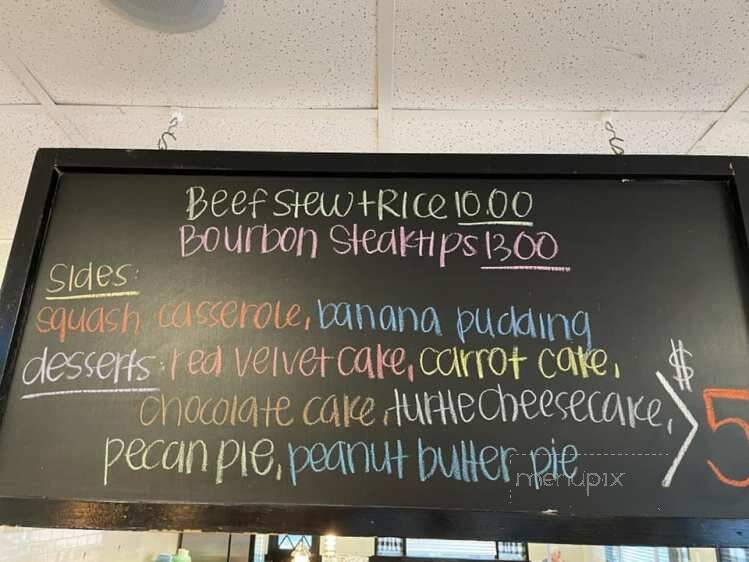 Beef Stew + Rice 10.00
Bourbon Steak tips 13.00
Sides:
squash casserole, banana pudding
desserts: red velvet cake, carrot cake,
chocolate cake, turtle cheesecake,
pecan pie, peanut butter pie
$5
menupix